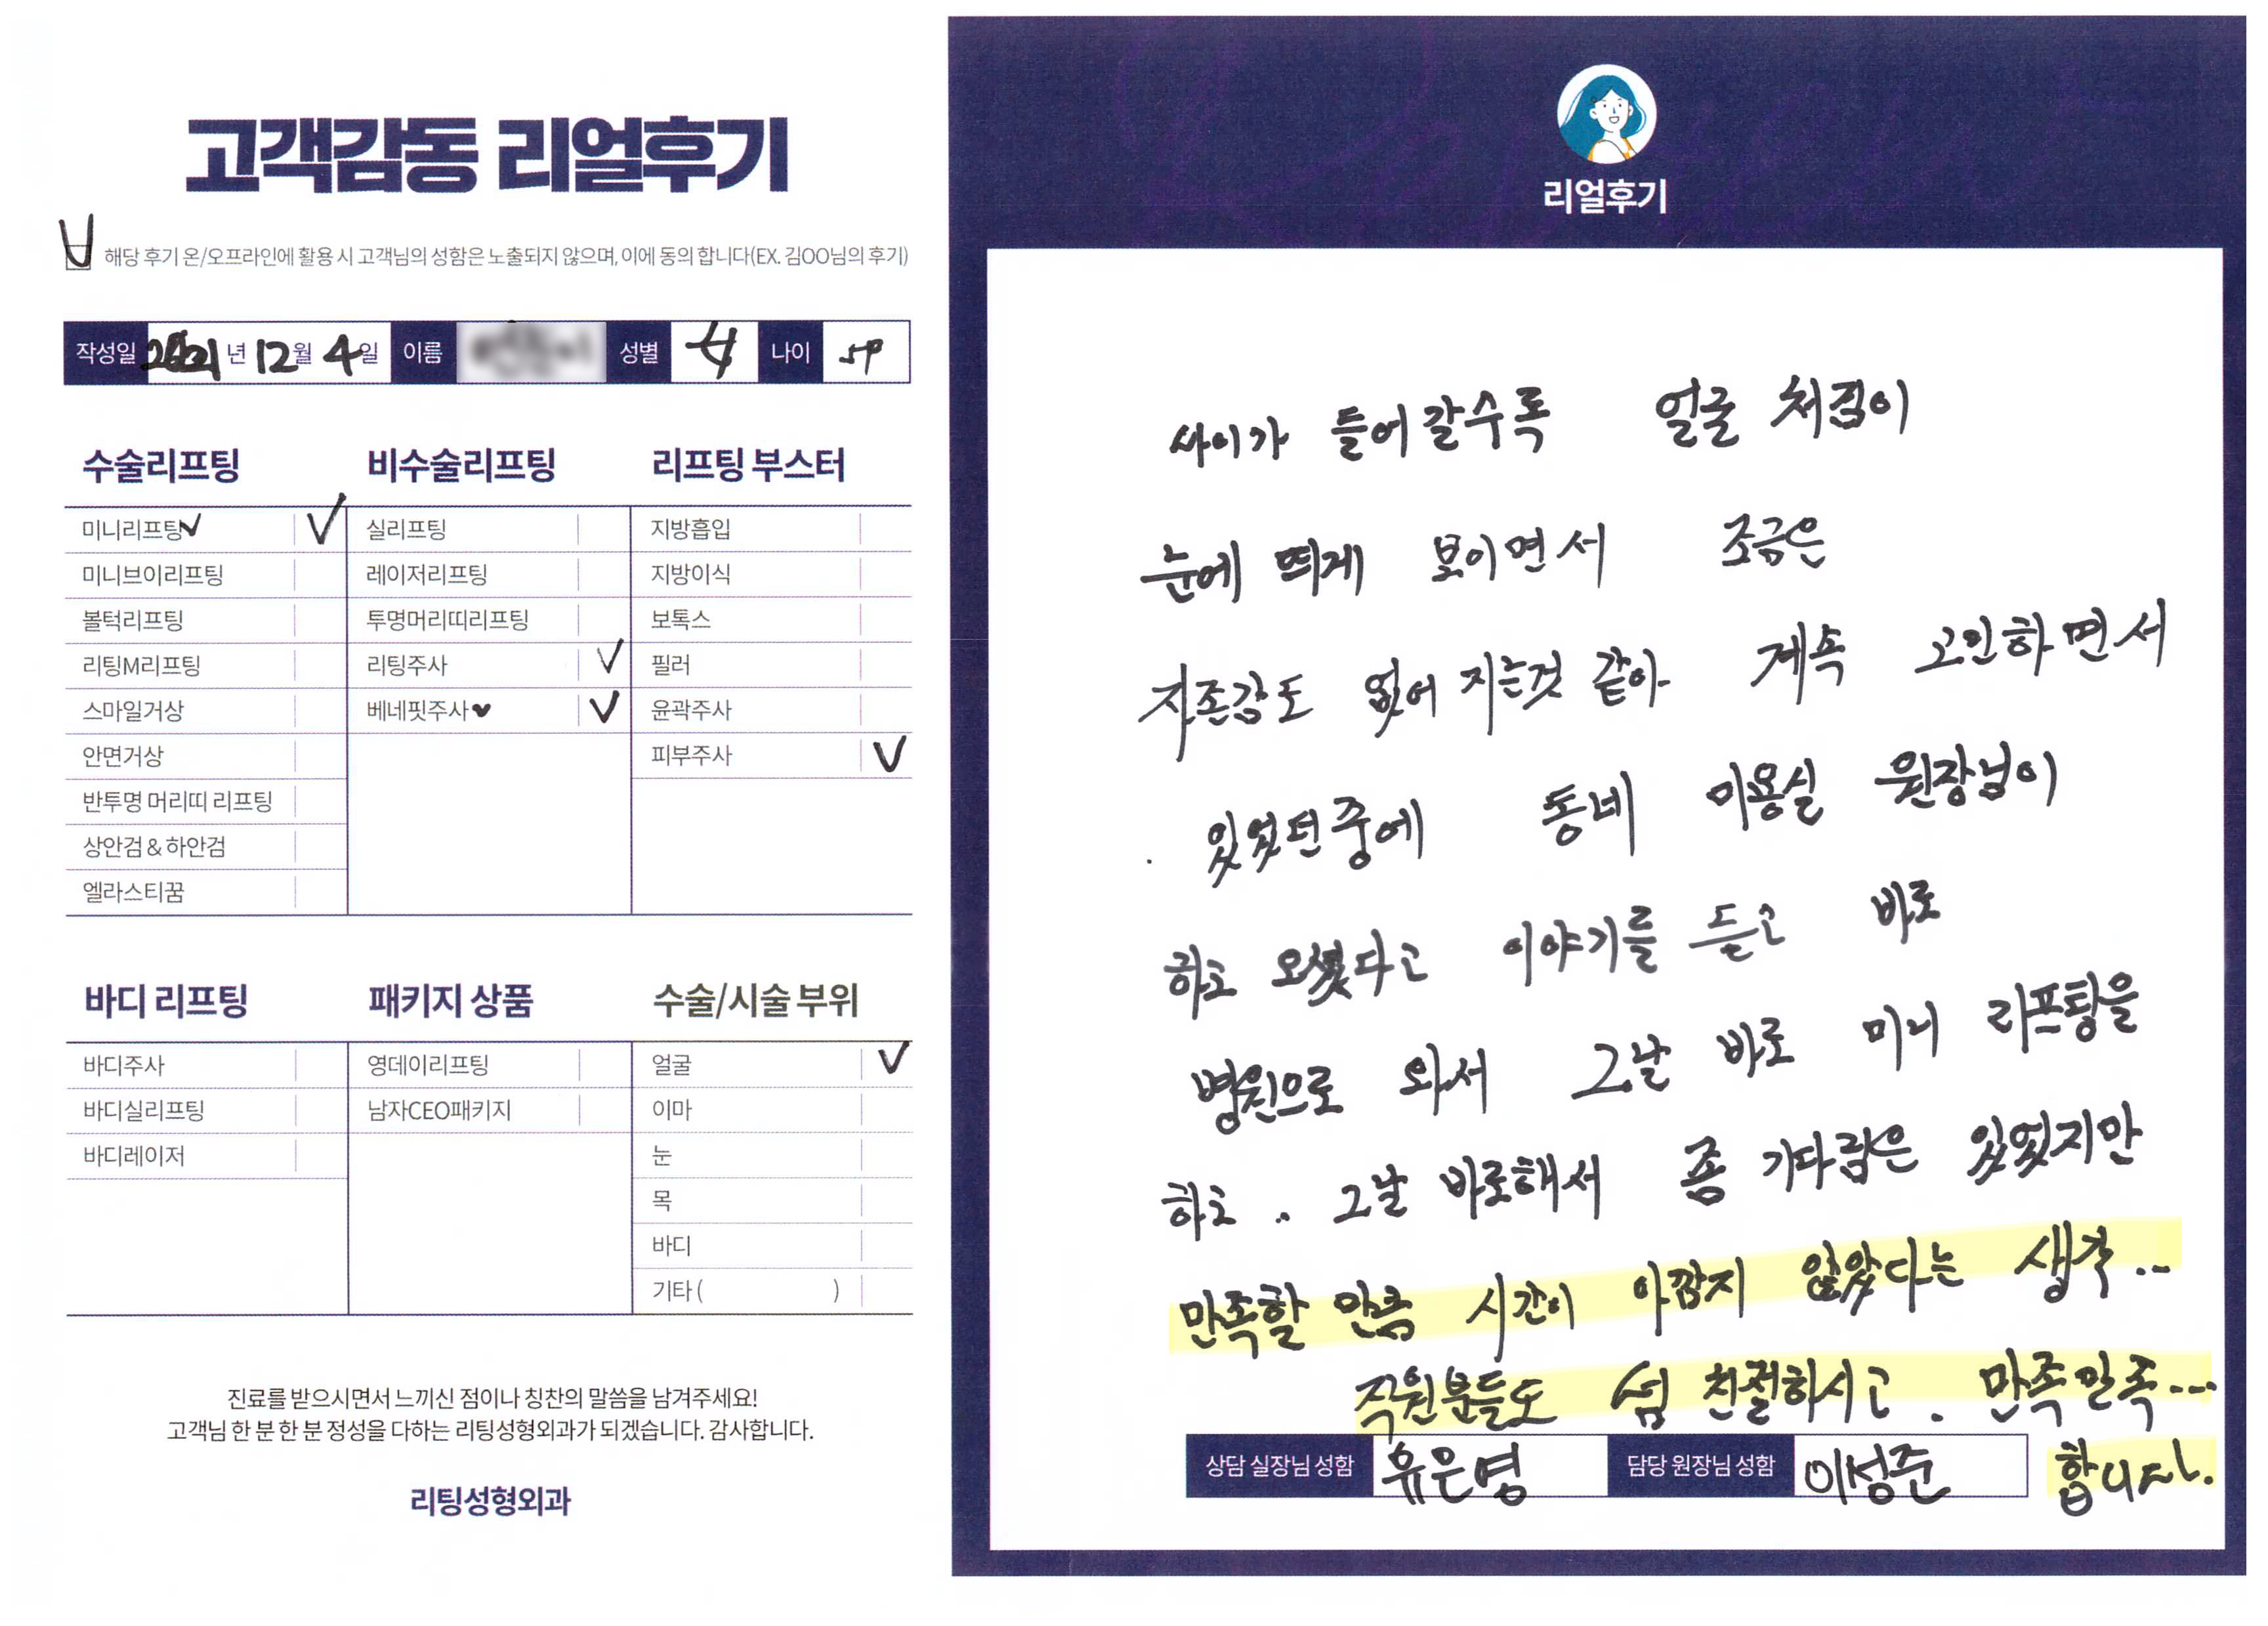 고객감동 리얼후기
해당 후기 온/오프라인에 활용 시 고객님의 성함은 노출되지 않으며, 이에 동의 합니다(EX. 김OO님의 후기)
작성일 2021년 12월 4일 이름 성별 여 나이
수술리프팅
미니리프팅
미니브이리프팅
볼턱리프팅
리팅M리프팅
스마일거상
안면거상
반투명 머리띠 리프팅
상안검 & 하안검
엘라스티꿈
비수술리프팅
실리프팅
레이저리프팅
투명머리띠리프팅
리팅주사
베네핏주사
리프팅 부스터
지방흡입
지방이식
보톡스
필러
윤곽주사
피부주사
바디 리프팅
바디주사
바디실리프팅
바디레이저
패키지 상품
영데이리프팅
남자CEO패키지
수술/시술 부위
얼굴
이마
눈
목
바디
기타 ( )
진료를 받으시면서 느끼신 점이나 칭찬의 말씀을 남겨주세요!
고객님 한 분 한 분 정성을 다하는 리팅성형외과가 되겠습니다. 감사합니다.
리팅성형외과
리얼후기
들어 갈수록 얼굴 처짐이
눈에 띄게 보이면서 조금은
자존감도 없어 지는것 같아 계속 고민하면서
있었던중에 동네 미용실 원장님이
하고 오셨다고 이야기를 듣고 바로
병원으로 와서 그날 바로 미니 리프팅을
하고 .. 그날 바로해서 좀 기다림은 있었지만
만족할 만큼 시간이 아깝지 않았다는 생각...
직원분들도 넘 친절하시고. 만족만족...
합니다.
상담 실장님 성함 유은영 담당 원장님 성함 이성준